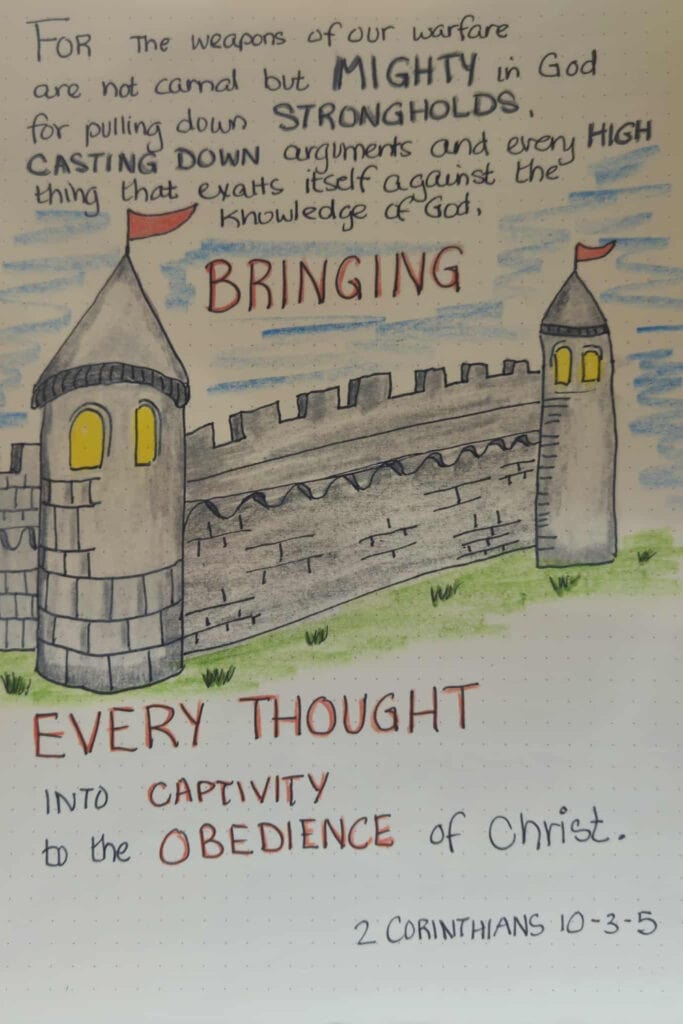 FOR The weapons of our warfare
are not carnal but MIGHTY in God
for pulling down STRONGHOLDS,
CASTING DOWN arguments and every HIGH
thing that exalts itself against the
knowledge of God,
BRINGING
EVERY THOUGHT
INTO CAPTIVITY
to the OBEDIENCE of Christ.
2 CORINTHIANS 10-3-5